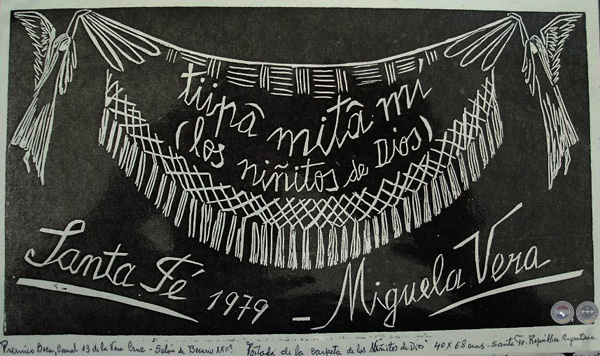 tiipâ mitâ mí
(los niñitos de Dios)
Santa Fé 1979 – Miguela Vera
Premios Beca, Canal 13 de la Vera Cruz - Salón de Becario - Portada de la Carpeta de los Niñitos de Dios" 40 x 68 cms - Santa Fe. República Argentina